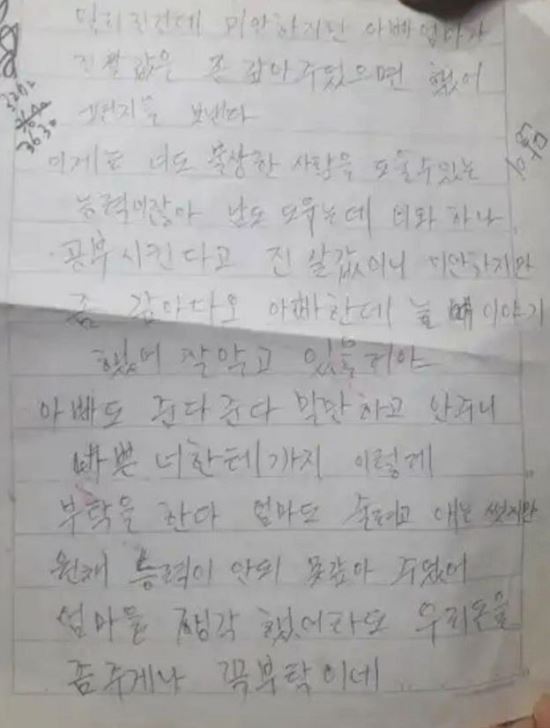 멀리 진건데 미안하지만 아빠엄마가
진 쌀 값을 좀 갚아 주었으면 했어
편지를 보낸다
이제는 너도 불상한 사람을 도울수있는
능력이잖아 남도 도우는데 너와 하나
공부시킨다고 진 쌀값이니 미안하지만
좀 갚아다오 아빠한데 늘 이야기
했으며 잘알고 있을 거야
아빠도 준다준다 말만 하고 안주니
바쁜 너한테까지 이렇게
부탁을 한다 엄마도 줄려고 애는 썼지만
원채 능력이 안되 못갚아 주었어
엄마를 생각 했어라도 우리돈을
좀주게나 꼭부탁이네